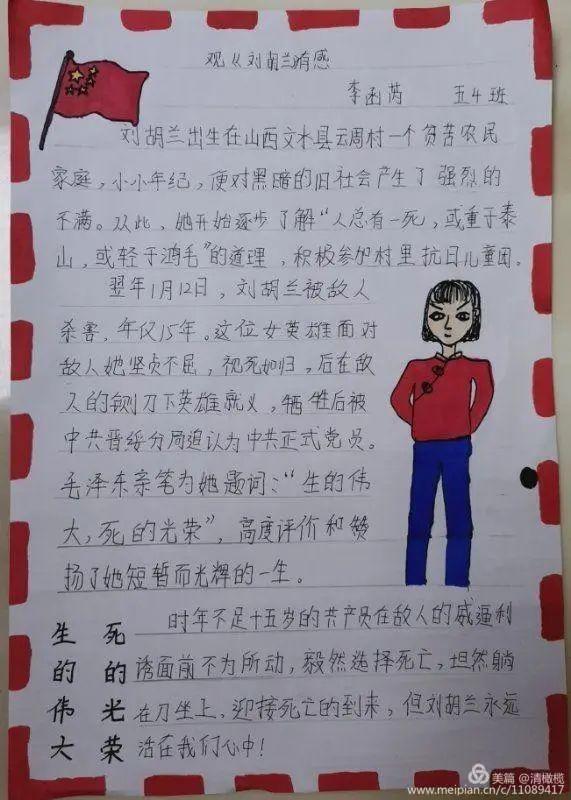 观《刘胡兰》有感
李函芮 五4班
刘胡兰出生在山西文水县云周村一个贫苦农民
家庭，小小年纪，便对黑暗的旧社会产生了强烈的
不满。从此，她开始逐步了解“人总有一死，或重于泰
山，或轻于鸿毛”的道理，积极参加村里抗日儿童团。
翌年1月12日，刘胡兰被敌人
杀害，年仅15年。这位女英雄面对
敌人她坚贞不屈，视死如归，后在敌
人的铡刀下英雄就义，牺牲后被
中共晋绥分局追认为中共正式党员。
毛泽东亲笔为她题词：“生的伟
大，死的光荣”，高度评价和赞
扬了她短暂而光辉的一生。
生的伟大
死的光荣
时年不足十五岁的共产员在敌人的威逼利
诱面前不为所动，毅然选择死亡，坦然躺
在刀坐上，迎接死亡的到来，但刘胡兰永远
活在我们心中！
美篇 @清橄榄
www.meipian.cn/c/11089417